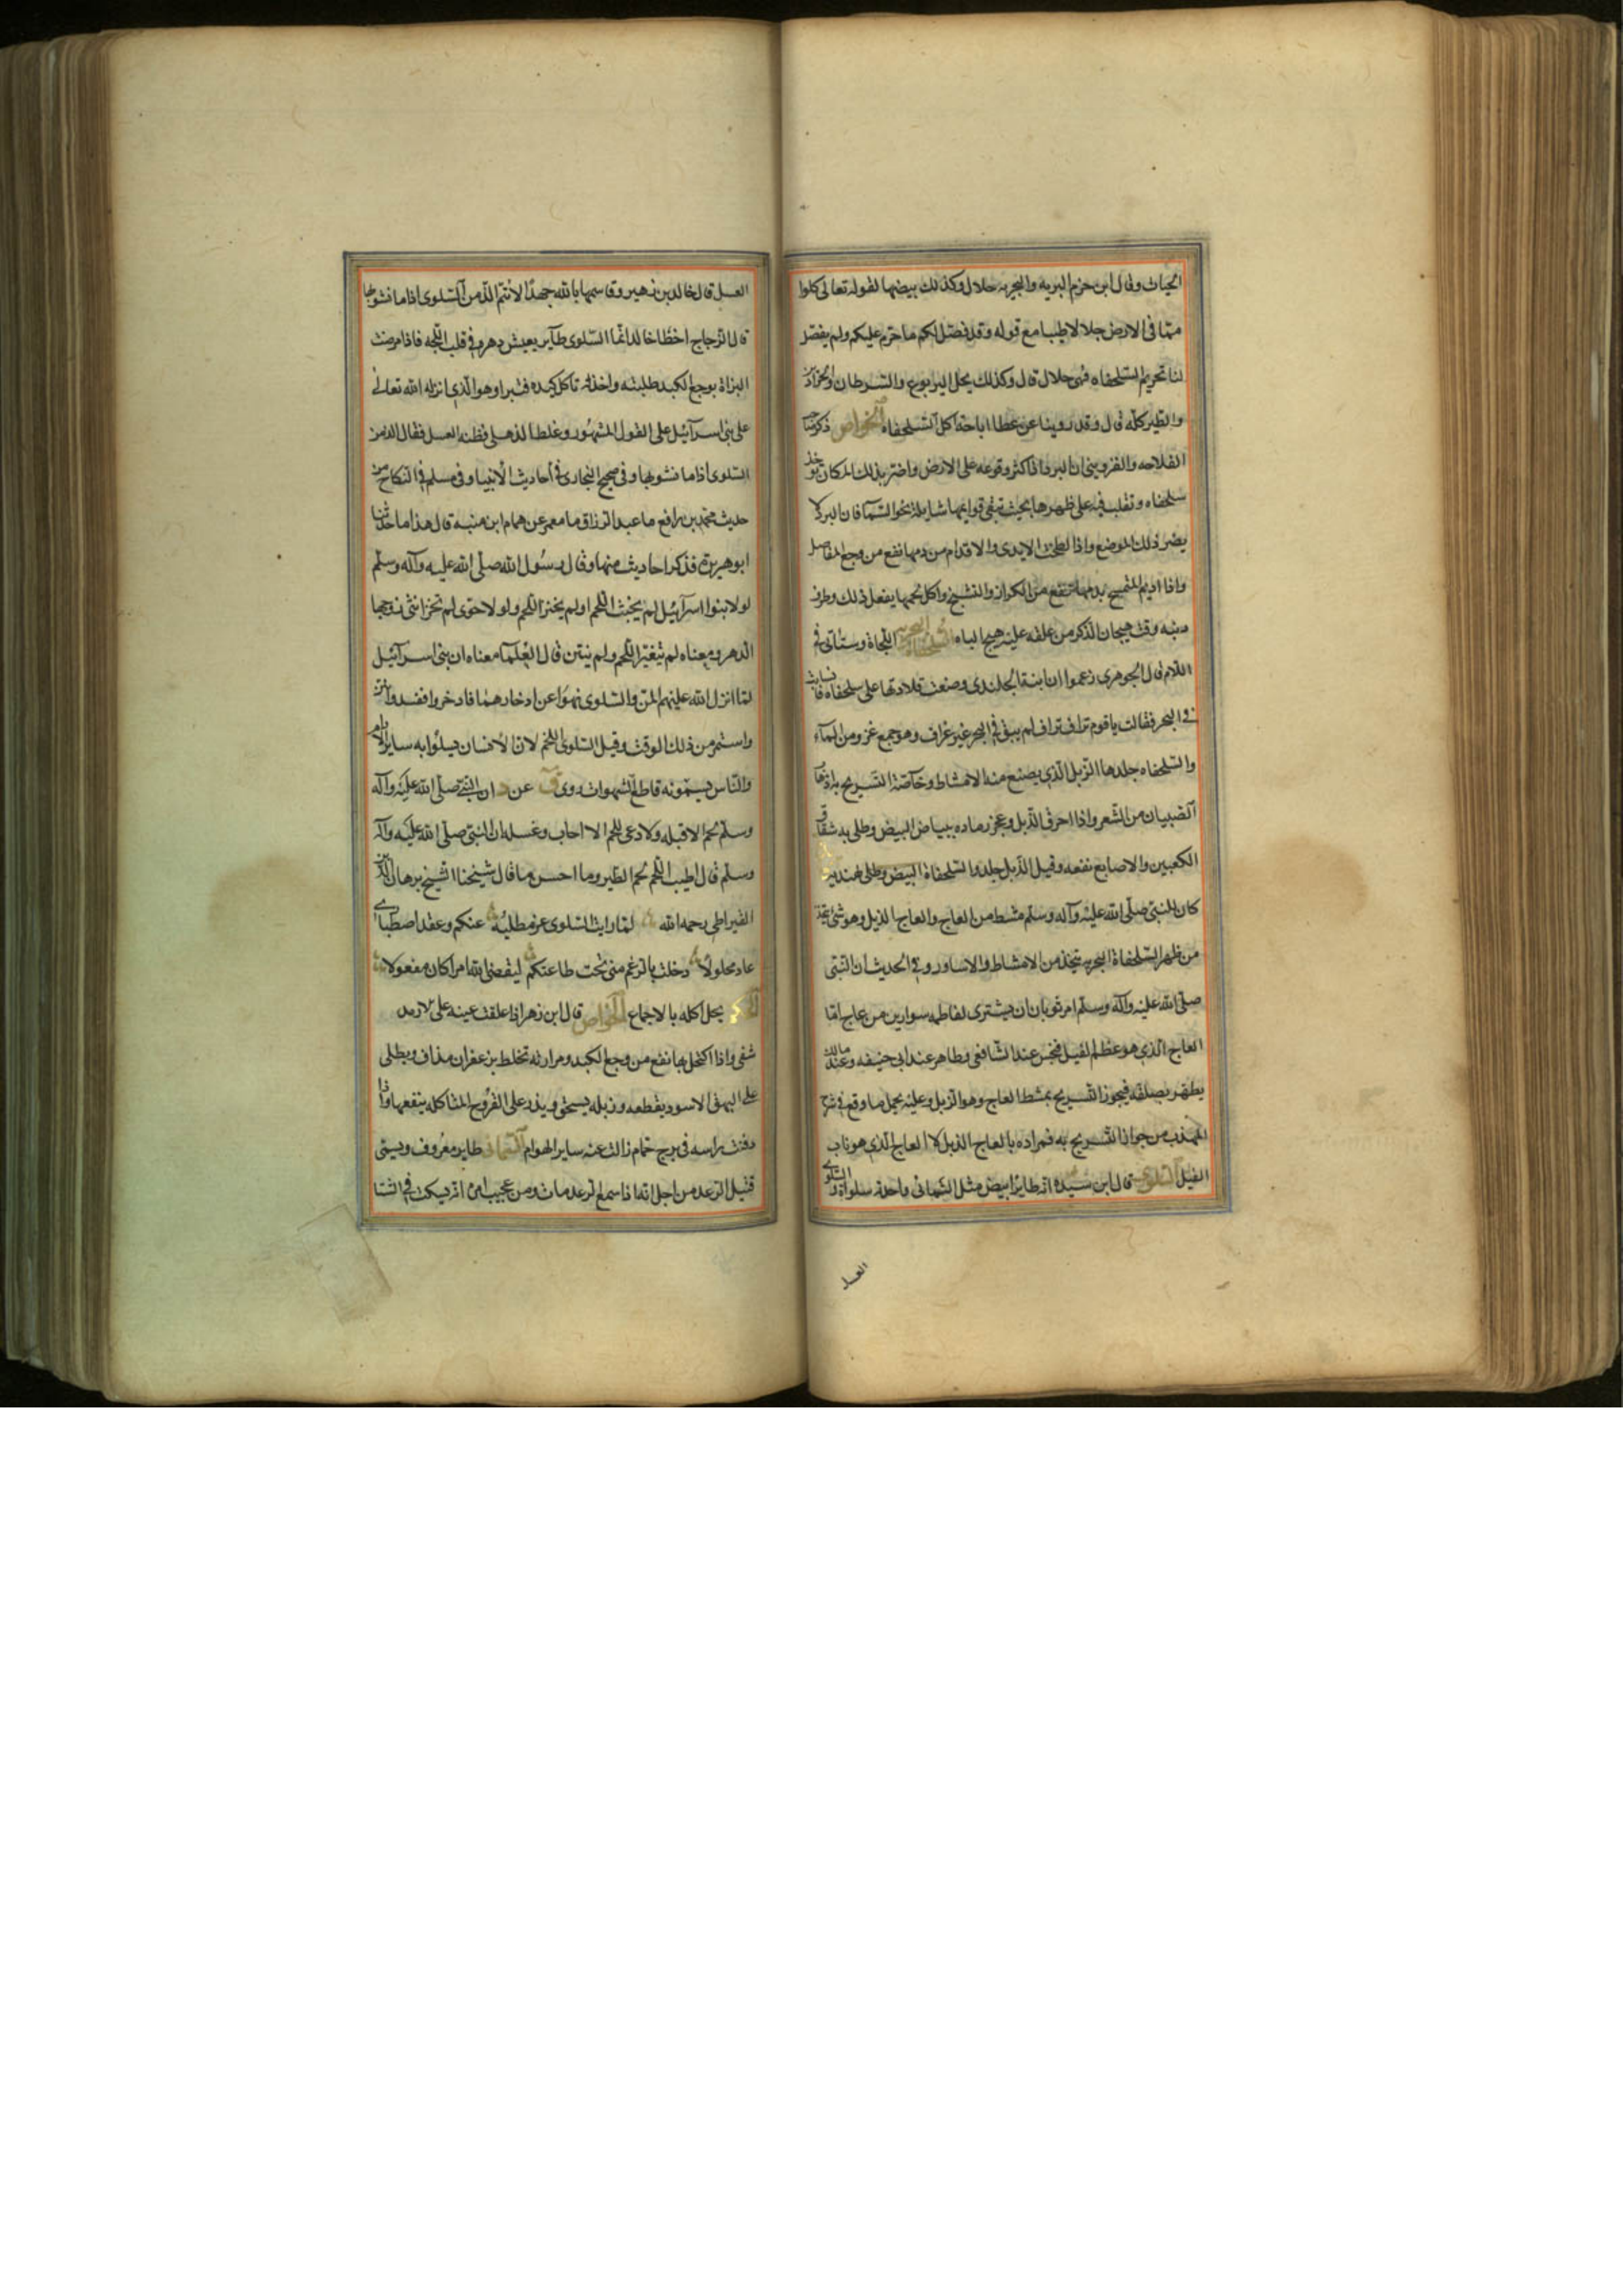 الحيات وقال ابن حزم البريه والبحريه حلال وكذلك بيضها لقوله تعالى كلوا
مما فى الارض حلالا طيبا مع قوله وقد فصل لكم ما حرم عليكم ولم يفصل
لنا تحريم السلحفاه فهى حلال قال وكذلك يحل اليربوع والسرطان والجراد
والطير كله قال وقد روينا عن عطا اباحة اكل السلحفاه الخواص ذكر صاحب
الفلاحه والقزوينى ان البرد اذا كثر وقوعه على الارض واضر بذلك المكان يوخذ
سلحفاه وتقلب فيه على ظهرها بحيث تبقى قوايمها شايلة نحو السمآ فان البرد لا
يضر ذلك الموضع واذا لطخت الايدى والاقدام من دمها نفع من وجع المفاصل
واذا اديم التمسح بدمها نفع من الكزاز والتشنج واكل لحمها يفعل ذلك وطرف
ذنبه وقت هيجان الذكر من علقه عليه هيج الباه السلحفاة البحريه اللجاة وستاتى فى
اللام قال الجوهرى زعموا ان ابنة الجلندى وضعت قلادتها على سلحفاه فانسابت
فى البحر فقالت ياقوم نزاف نزاف لم يبق فى البحر غير غراف وهو جمع غرو من المآء
والسلحفاه جلدها الذبل الذى يصنع منه الامشاط وخآصة التسريح به اذهاب
الصبيان من الشعر واذا احرق الذبل وعجن رماده ببياض البيض وطلى به شقاق
الكعبين والاصابع نفعه وقيل الذبل جلد السلحفاة البيض وطلى الهنديه
كان للنبى صلى الله عليه وآله وسلم مشط من العاج والعاج الذبل وهو شى يتخذ
من ظهر السلحفاة البحريه يتخذ من الامشاط والاساور وفى الحديث ان النبى
صلى الله عليه وآله وسلم امر ثوبان ان يشترى لفاطمه سوارين من عاج اما
العاج الذى هو عظم الفيل فنجس عند الشافعى وطاهر عند ابى حنيفه وعند مالك
يطهر بصقله فيجوز التسريح بمشط العاج وهو الذبل وعليه يحمل ما وقع فى شرح
المهذب من جواز التسريح به فمراده بالعاج الذبل لا العاج الذى هو ناب
الفيل السلوى قال ابن سيده انه طاير ابيض مثل السمانى واحدته سلواة والسلوى
العسل
العسل قال خالد بن زهير وقاسمها بالله جهدا لانتم الذ من السلوى اذا ما نشورها
قال الزجاج اخطا خالد انما السلوى طآير يعيش دهره فى قلب اللجه فاذا مرضت
البزاة بوجع الكبد طلبته واخذته تاكل كبده فتبرا وهو الذى انزله الله تعالى
على بنى اسرآئيل على القول المشهور وغلط الهذلى فظنه العسل فقال الذ من
السلوى اذا ما نشورها وفى صحيح البخارى فى احاديث الانبيا وفى مسلم فى النكاح من
حديث محمد بن رافع ما عبد الرزاق ما معمر عن همام ابن منبه قال هذا ما حدثنا
ابو هريرة فذكر احاديث منها وقال رسول الله صلى الله عليه وآله وسلم
لولا بنوا اسرآئيل لم يخبث اللحم اولم يخنز اللحم ولولا حوى لم تخن انثى زوجها
الدهر ومعناه لم يتغير اللحم ولم ينتن قال العلمآ معناه ان بنى اسرآئيل
لما انزل الله عليهم المن والسلوى نهوا عن ادخارهما فادخروا ففسد وانتن
واستمر من ذلك الوقت وقيل السلوى اللحم لان الانسان يسلوا به ساير الادام
والناس يسمونه قاطع الشهوات روى ق عن د ان النبى صلى الله عليه وآله
وسلم لحم الا قبله ولا دعى للحم الا اجاب وغسله ان النبى صلى الله عليه وآله
وسلم قال اطيب اللحم لحم الطير وما احسن ما قال شيخنا الشيخ برهان الدين
القيراطى رحمه الله لما رايت السلوى عز مطلبه عنكم وعقد اصطبارى
عاد محلولا دخلت بالرغم منى تحت طاعتكم ليقضى الله امرا كان مفعولا
الحكم يحل اكله بالاجماع الخواص قال ابن زهر اذا علقت عينه على الارمد
شفى واذا اكتحل بها نفع من وجع الكبد ومرارته تخلط بزعفران مذاف ويطلى
على البهق الاسود يقطعه وزبله يسحق ويذر على القروح المتاكله ينفعها واذا
دفنت راسه فى برج حمام زالت عنه ساير الهوام السمانى طاير معروف ويسمى
قتيل الرعد من اجل انه اذا سمع الرعد مات ومن عجيب امره انه يسكت فى الشتا